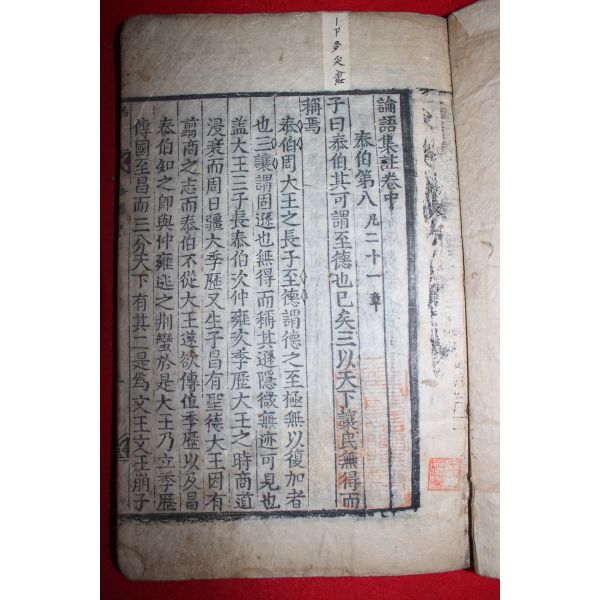 論語集註卷中
泰伯第八 凡二十一章
子曰泰伯其可謂至德也已矣三以天下讓民無得而
稱焉
泰伯周大王之長子至德謂德之至極無以復加者
也三讓謂固遜也無得而稱其遜隱微無迹可見也
盖大王三子長泰伯次仲雍次季歷大王之時商道
浸衰而周日彊大季歷又生子昌有聖德大王因有
翦商之志而泰伯不從大王遂欲傳位季歷以及昌
泰伯知之卽與仲雍逃之荆蠻於是大王乃立季歷
傳國至昌而三分天下有其二是為文王文王崩子